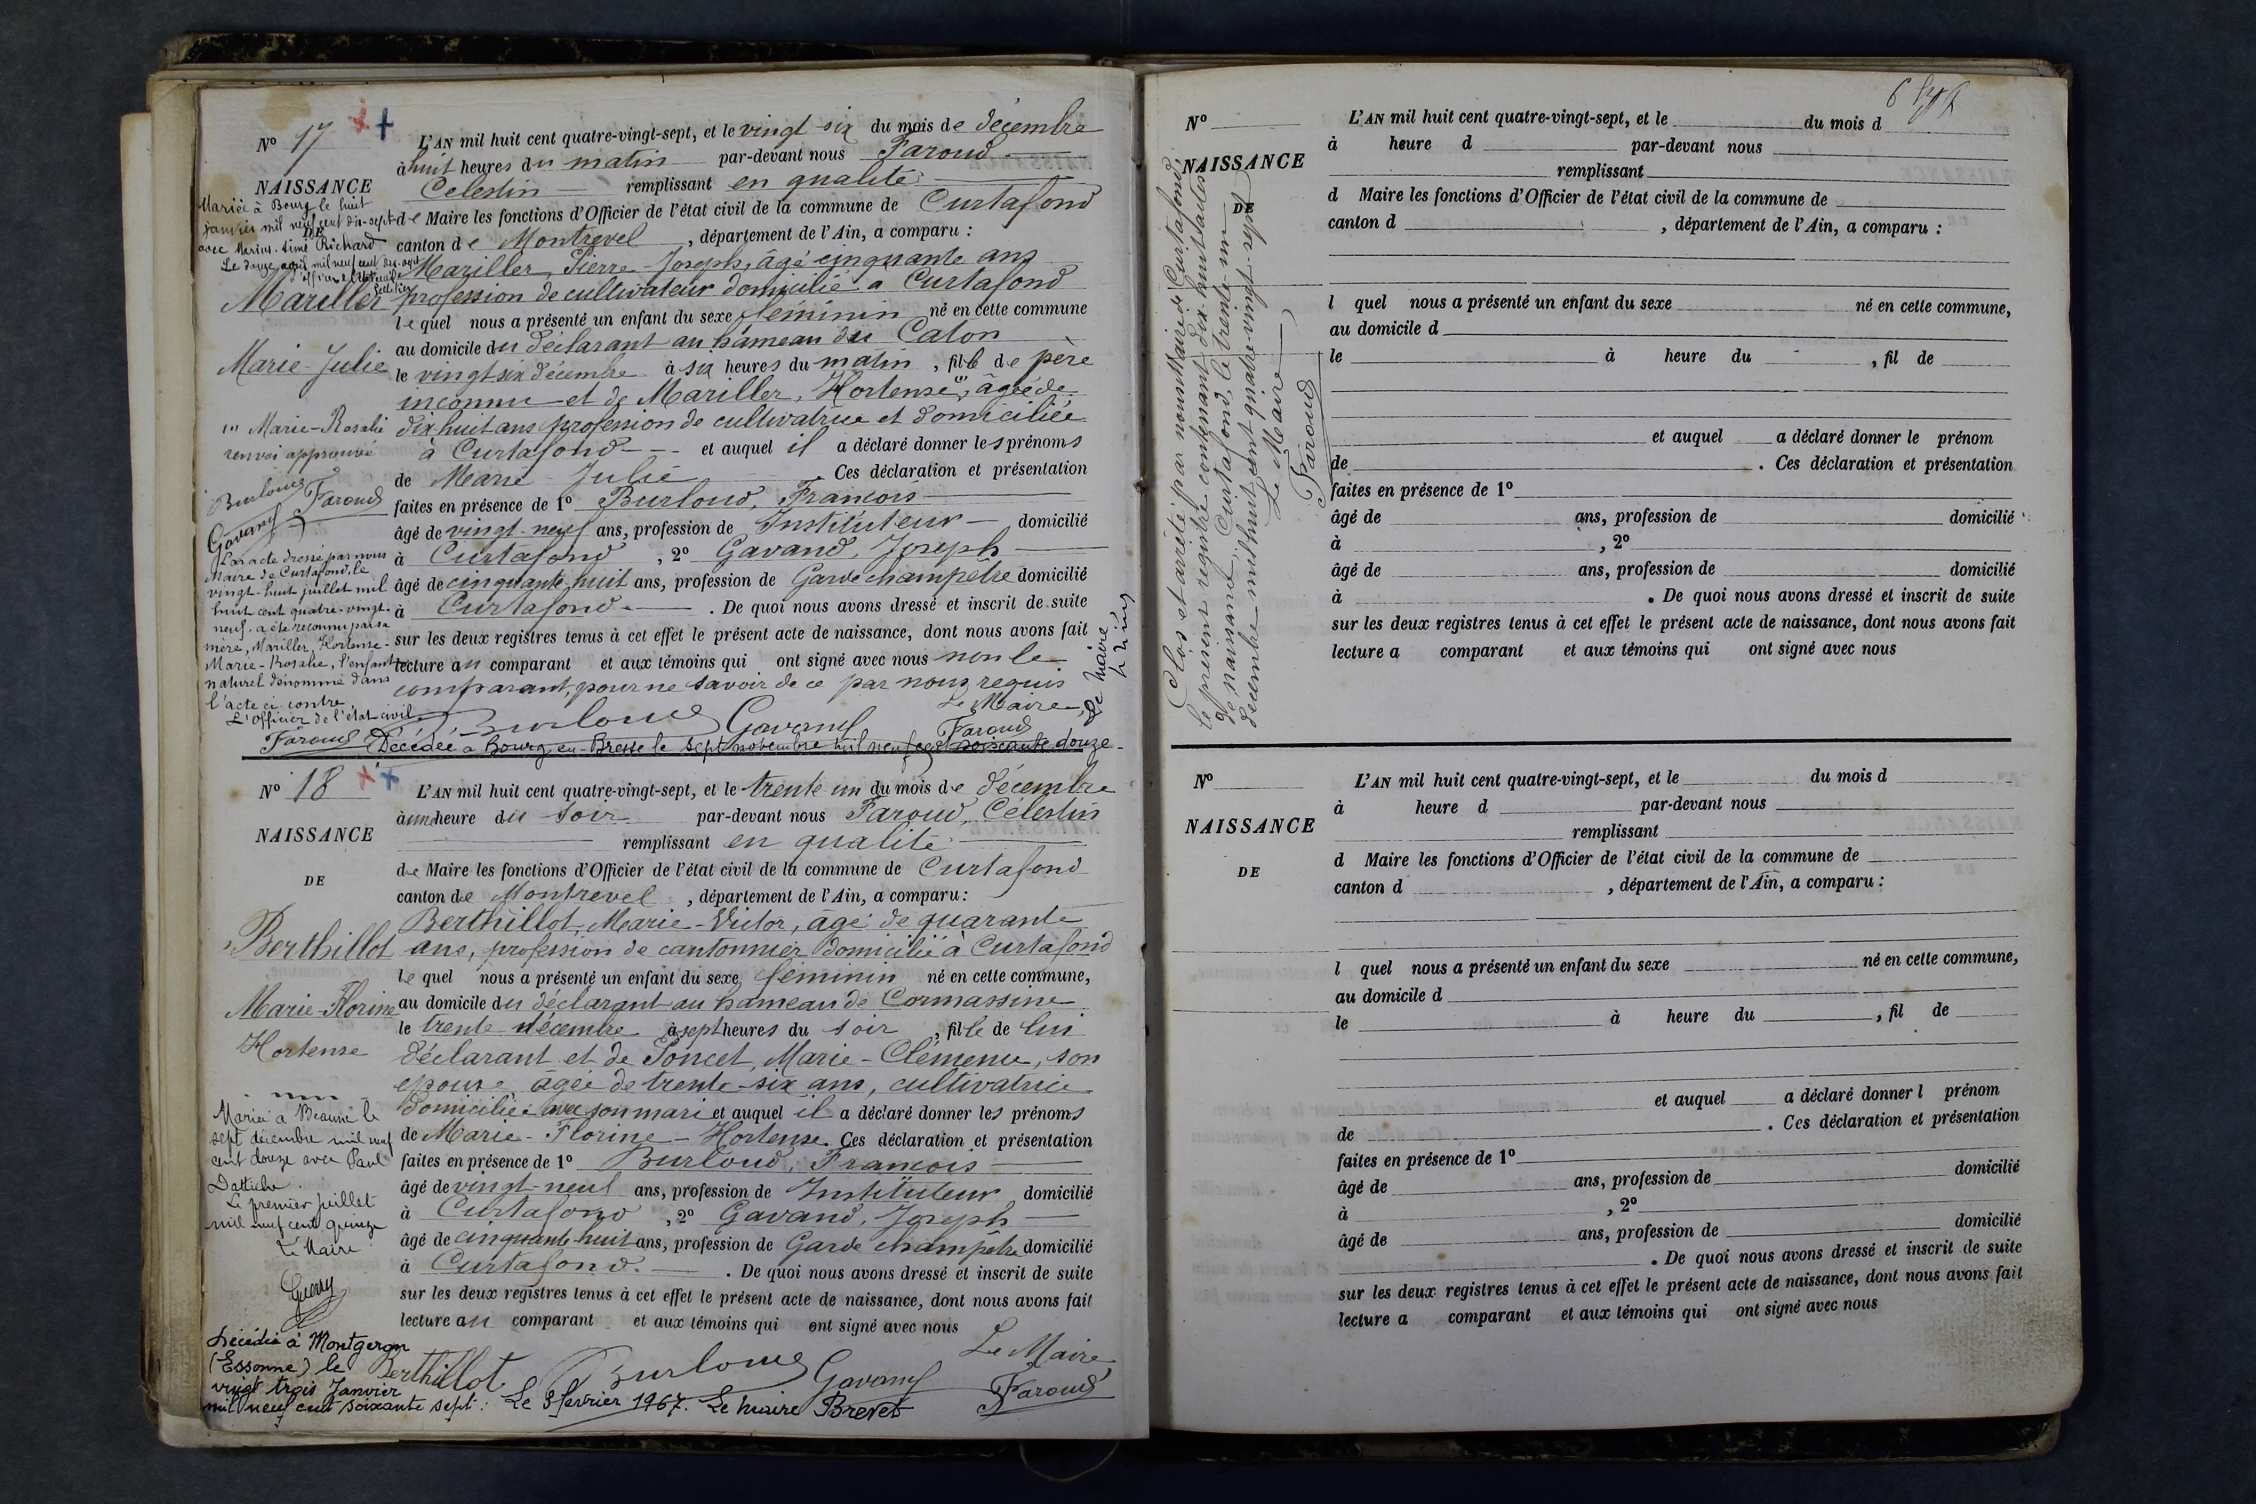 N° 17
NAISSANCE
Mariée à Bourg le huit
janvier mil neuf cent dix-sept
DE
avec Marius-Aimé Richard
Le douze avril mil neuf cent dix-sept
Mariller
Marie-Julie
''' Marie-Rosalie
renvoi approuvé
Burloud Faroud
Gavand
Par acte dressé par nous
Maire de Curtafond, le
vingt-huit juillet mil
huit cent quatre-vingt-
neuf, a été reconnu par sa
mère, Mariller, Hortense-
Marie-Rosalie, l'enfant
naturel dénommé dans
l'acte ci contre.
L'Officier de l'état civil
Faroud
L'AN mil huit cent quatre-vingt-sept, et le vingt six du mois de décembre
à huit heures du matin par-devant nous Faroud
Celestin remplissant en qualité
de Maire les fonctions d'Officier de l'état civil de la commune de Curtafond
canton de Montrevel, département de l'Ain, a comparu :
Mariller, Pierre-Joseph, âgé cinquante ans
profession de cultivateur domicilié à Curtafond
lequel nous a présenté un enfant du sexe féminin né en cette commune
au domicile du déclarant au hameau du Caton
le vingt six décembre à six heures du matin, fille de père
inconnu et de Mariller, Hortense''', âgée de
dix huit ans profession de cultivatrice et domiciliée
à Curtafond et auquel il a déclaré donner les prénoms
de Marie Julie Ces déclaration et présentation
faites en présence de 1° Burloud, François
âgé de vingt-neuf ans, profession de Instituteur domicilié
à Curtafond, 2° Gavand, Joseph
âgé de cinquante huit ans, profession de Garde champêtre domicilié
à Curtafond. De quoi nous avons dressé et inscrit de suite
sur les deux registres tenus à cet effet le présent acte de naissance, dont nous avons fait
lecture au comparant et aux témoins qui ont signé avec nous non le
comparant, pour ne savoir de ce par nous requis
Le Maire,
Burloud Gavand Faroud
Décédée à Bourg-en-Bresse le sept novembre mil neuf cent soixante douze-
Le Maire
N° 18
NAISSANCE
DE
Berthillot
Marie-Florine
Hortense
Mariée à Beaune le
sept décembre mil neuf
cent douze avec Paul
Le premier juillet
mil neuf cent quinze
Le Maire
Décédée à Montgeron
(Essonne) le
vingt trois Janvier
mil neuf cent soixante sept : Le 3 fevrier 1967. Le Maire Brevet
L'AN mil huit cent quatre-vingt-sept, et le trente un du mois de décembre
à une heure du soir par-devant nous Faroud, Célestin
remplissant en qualité
de Maire les fonctions d'Officier de l'état civil de la commune de Curtafond
canton de Montrevel, département de l'Ain, a comparu :
Berthillot, Marie-Victor, âgé de quarante
ans, profession de cantonnier domicilié à Curtafond
lequel nous a présenté un enfant du sexe féminin né en cette commune,
au domicile du déclarant au hameau de Cormassine
le trente décembre à sept heures du soir, fille de lui
déclarant et de Poncet, Marie-Clémence, son
épouse, âgée de trente-six ans, cultivatrice
domiciliée avec son mari et auquel il a déclaré donner les prénoms
de Marie-Florine-Hortense. Ces déclaration et présentation
faites en présence de 1° Burloud, François
âgé de vingt-neuf ans, profession de Instituteur domicilié
à Curtafond, 2° Gavand, Joseph
âgé de cinquante-huit ans, profession de Garde champêtre domicilié
à Curtafond. De quoi nous avons dressé et inscrit de suite
sur les deux registres tenus à cet effet le présent acte de naissance, dont nous avons fait
lecture au comparant et aux témoins qui ont signé avec nous
Le Maire,
Berthillot Burloud Gavand Faroud
N°
NAISSANCE
DE
Clos et arrêté par nous Maire de Curtafond,
le présent registre contenant dix huit actes
de naissance, Curtafond, le trente-un
décembre mil huit cent quatre-vingt-sept
Le Maire
Faroud
L'AN mil huit cent quatre-vingt-sept, et le du mois d
à heure d par-devant nous
remplissant
d Maire les fonctions d'Officier de l'état civil de la commune de
canton d , département de l'Ain, a comparu :
l quel nous a présenté un enfant du sexe né en cette commune,
au domicile d
le à heure du , fil de
et auquel a déclaré donner le prénom
de . Ces déclaration et présentation
faites en présence de 1°
âgé de ans, profession de domicilié
à , 2°
âgé de ans, profession de domicilié
à . De quoi nous avons dressé et inscrit de suite
sur les deux registres tenus à cet effet le présent acte de naissance, dont nous avons fait
lecture a comparant et aux témoins qui ont signé avec nous
N°
NAISSANCE
DE
L'AN mil huit cent quatre-vingt-sept, et le du mois d
à heure d par-devant nous
remplissant
d Maire les fonctions d'Officier de l'état civil de la commune de
canton d , département de l'Ain, a comparu :
l quel nous a présenté un enfant du sexe né en cette commune,
au domicile d
le à heure du , fil de
et auquel a déclaré donner l prénom
de . Ces déclaration et présentation
faites en présence de 1°
âgé de ans, profession de domicilié
à , 2°
âgé de ans, profession de domicilié
. De quoi nous avons dressé et inscrit de suite
sur les deux registres tenus à cet effet le présent acte de naissance, dont nous avons fait
lecture a comparant et aux témoins qui ont signé avec nous